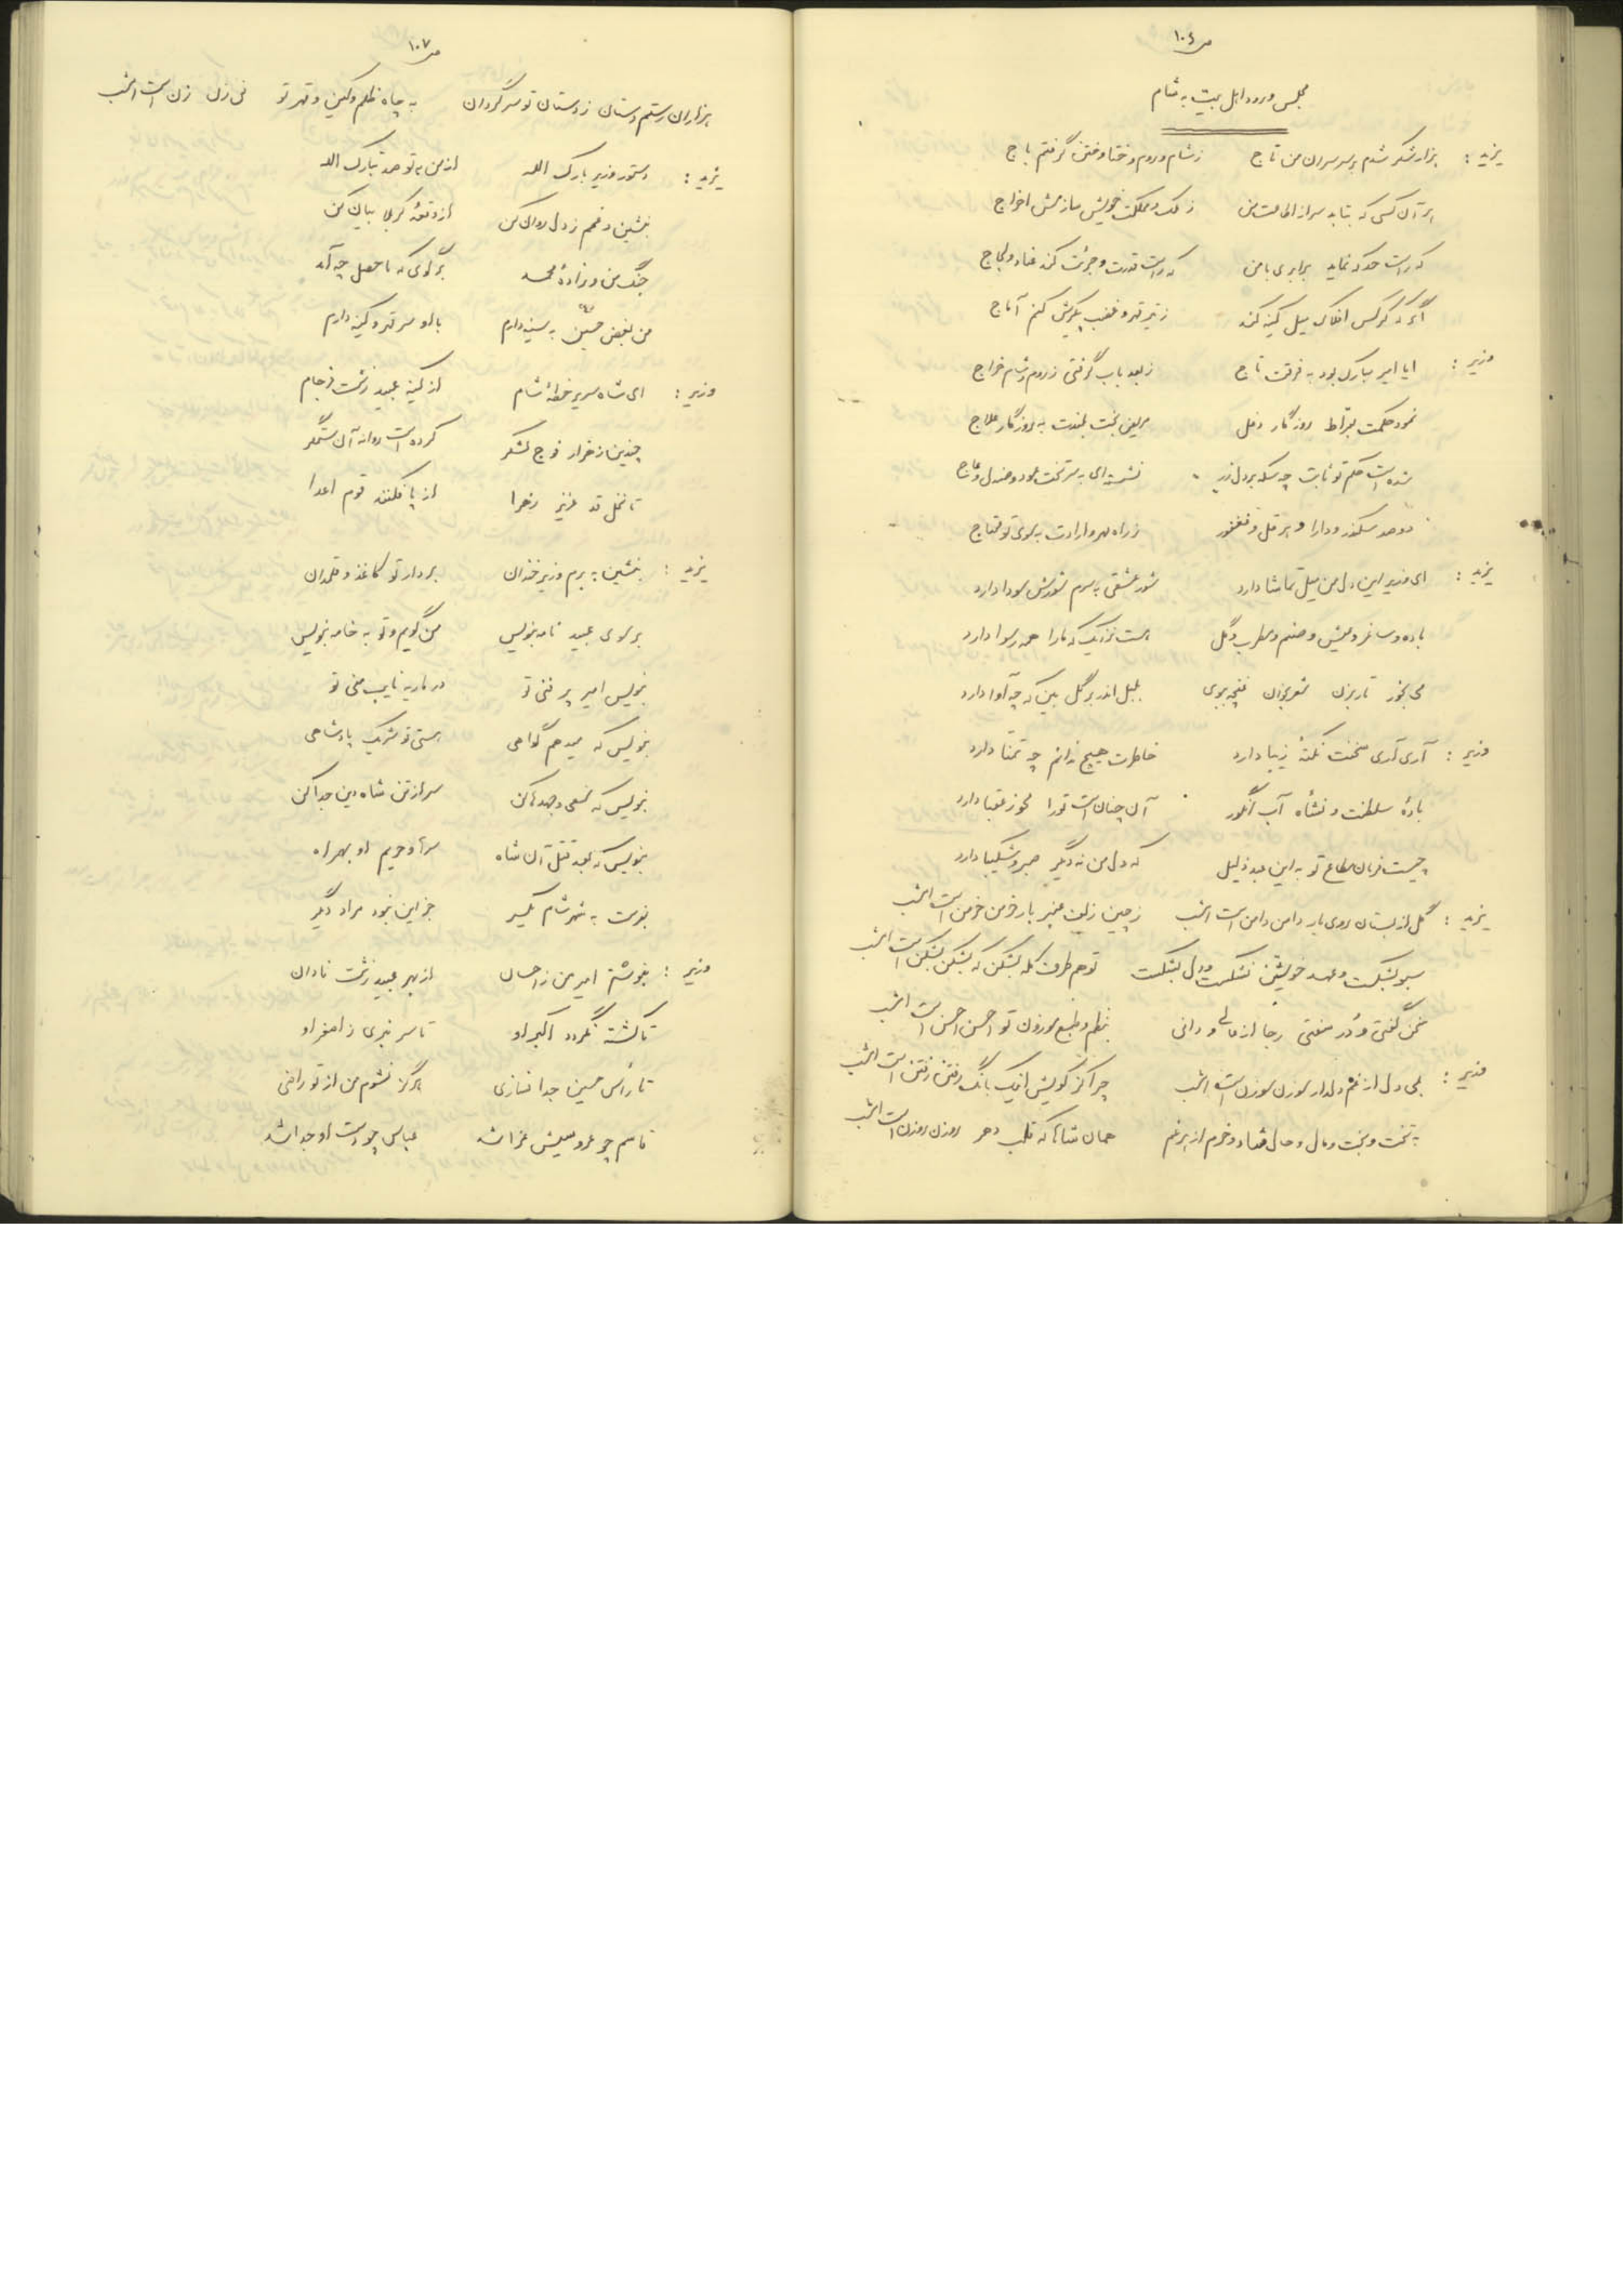 ص ۱۰۶
مجلس ورود اهل بیت به شام
یزید : هزار شکر شدم بر سر سران من تاج ز شام و روم و ختا و ختن گرفتم باج
هر آن کسی که بتابد سر از اطاعت من ز ملک و مملکت خویش سازمش اخراج
که راست حد که نماید برابری با من که راست قدرت و جرئت کند عناد و لجاج
اگر که کرکس افلاک میل کینه کند ز تیر قهر و غضب پیکرش کنم آماج
وزیر : ایا امیر مبارک بود به فرقت تاج ز بعد باب گرفتی ز روم و شام خراج
نمود حکمت بقراط روزگار دغل مریض بخت بلندت به روزگار علاج
شده است حکم تو ثابت چو سکه بر دل زر نشسته‌ای به سر تخت عود و صندل و عاج
دو صد سکندر و دارا و هرقل و فغفور ز راه مهر و ارادت به سوی تو محتاج
یزید : ای وزیر این دل من میل تماشا دارد شور عشقی به سرم شورش سودا دارد
باده و ساغر و عیش و صنم و مطرب و گل هست نزدیک که ما را همه رسوا دارد
می بخور تار بزن شعر بخوان غنچه ببوی بلبل اندر بر گل بین که چه آوا دارد
وزیر : آری آری سخنت نکتهٔ زیبا دارد خاطرت هیچ ندانم چه تمنا دارد
بادهٔ سلطنت و نشأه آب انگور آن چنان است تو را محو ز عقبا دارد
چیست فرمان مطاع تو به این عبد ذلیل که دل من نه دگر صبر و شکیبا دارد
یزید : گل از بستان روی یار دامن دامن است امشب ز چین زلف عنبر بار خرمن خرمن است امشب
سبو بشکست و عهد خویشتن نشکست و دل بشکست تو هم طرف کله بشکن که بشکن بشکن است امشب
سخن گفتی و در سفتی رجا از ما و رانی بنظم و طبع موزون تو احسن احسن است امشب
وزیر : بلی دل از غم دلدار سوزن سوزن است امشب چرا کز کویش اینک بانگ رفتن رفتن است امشب
به تخت و بخت و مال و حال شاد و خرم از هر غم همان شاها که قلب دهر روزن روزن است امشب
ص ۱۰۷
هزاران رستم دستان ز دستان تو سرگردان به چاه ظلم و کین و قهر تو فی زن زن است امشب
یزید : دستور وزیر بارک الله از من به تو صد تبارک الله
بنشین و غمم ز دل روان کن از وقعهٔ کربلا بیان کن
جنگ من و زادهٔ محمد برگوی که ما حصل چه آمد
من بغض حسین به سینه دارم با او سر قهر و کینه دارم
وزیر : ای شاه سریر خطهٔ شام از کینه عبید زشت فرجام
چندین ز هزار فوج لشکر کرده است روانه آن ستمگر
تا نخل قد عزیز زهرا از پا فکنند قوم اعدا
یزید : بنشین به برم وزیر خندان بردار تو کاغذ و قلمدان
بر سوی عبید نامه بنویس من گویم و تو به خامه بنویس
بنویس امیر پر فنی تو در ماریه نایب منی تو
بنویس که میدهم گواهی هستی تو شریک پادشاهی
بنویس که سعی و جهدها کن سر از تن شاه دین جدا کن
بنویس که بعد قتل آن شاه سرها و حریم او به همراه
بفرست به شهر شام یکسر جز این نبود مراد دیگر
وزیر : بنوشتم امیر من ز احسان از بهر عبید زشت نادان
تا کشته نگردد اکبر او تا سر نبری ز اصغر او
تا رأس حسین جدا نسازی هرگز نشوم من از تو راضی
قاسم چو عروسیش عزا شد عباس چو دست او جدا شد